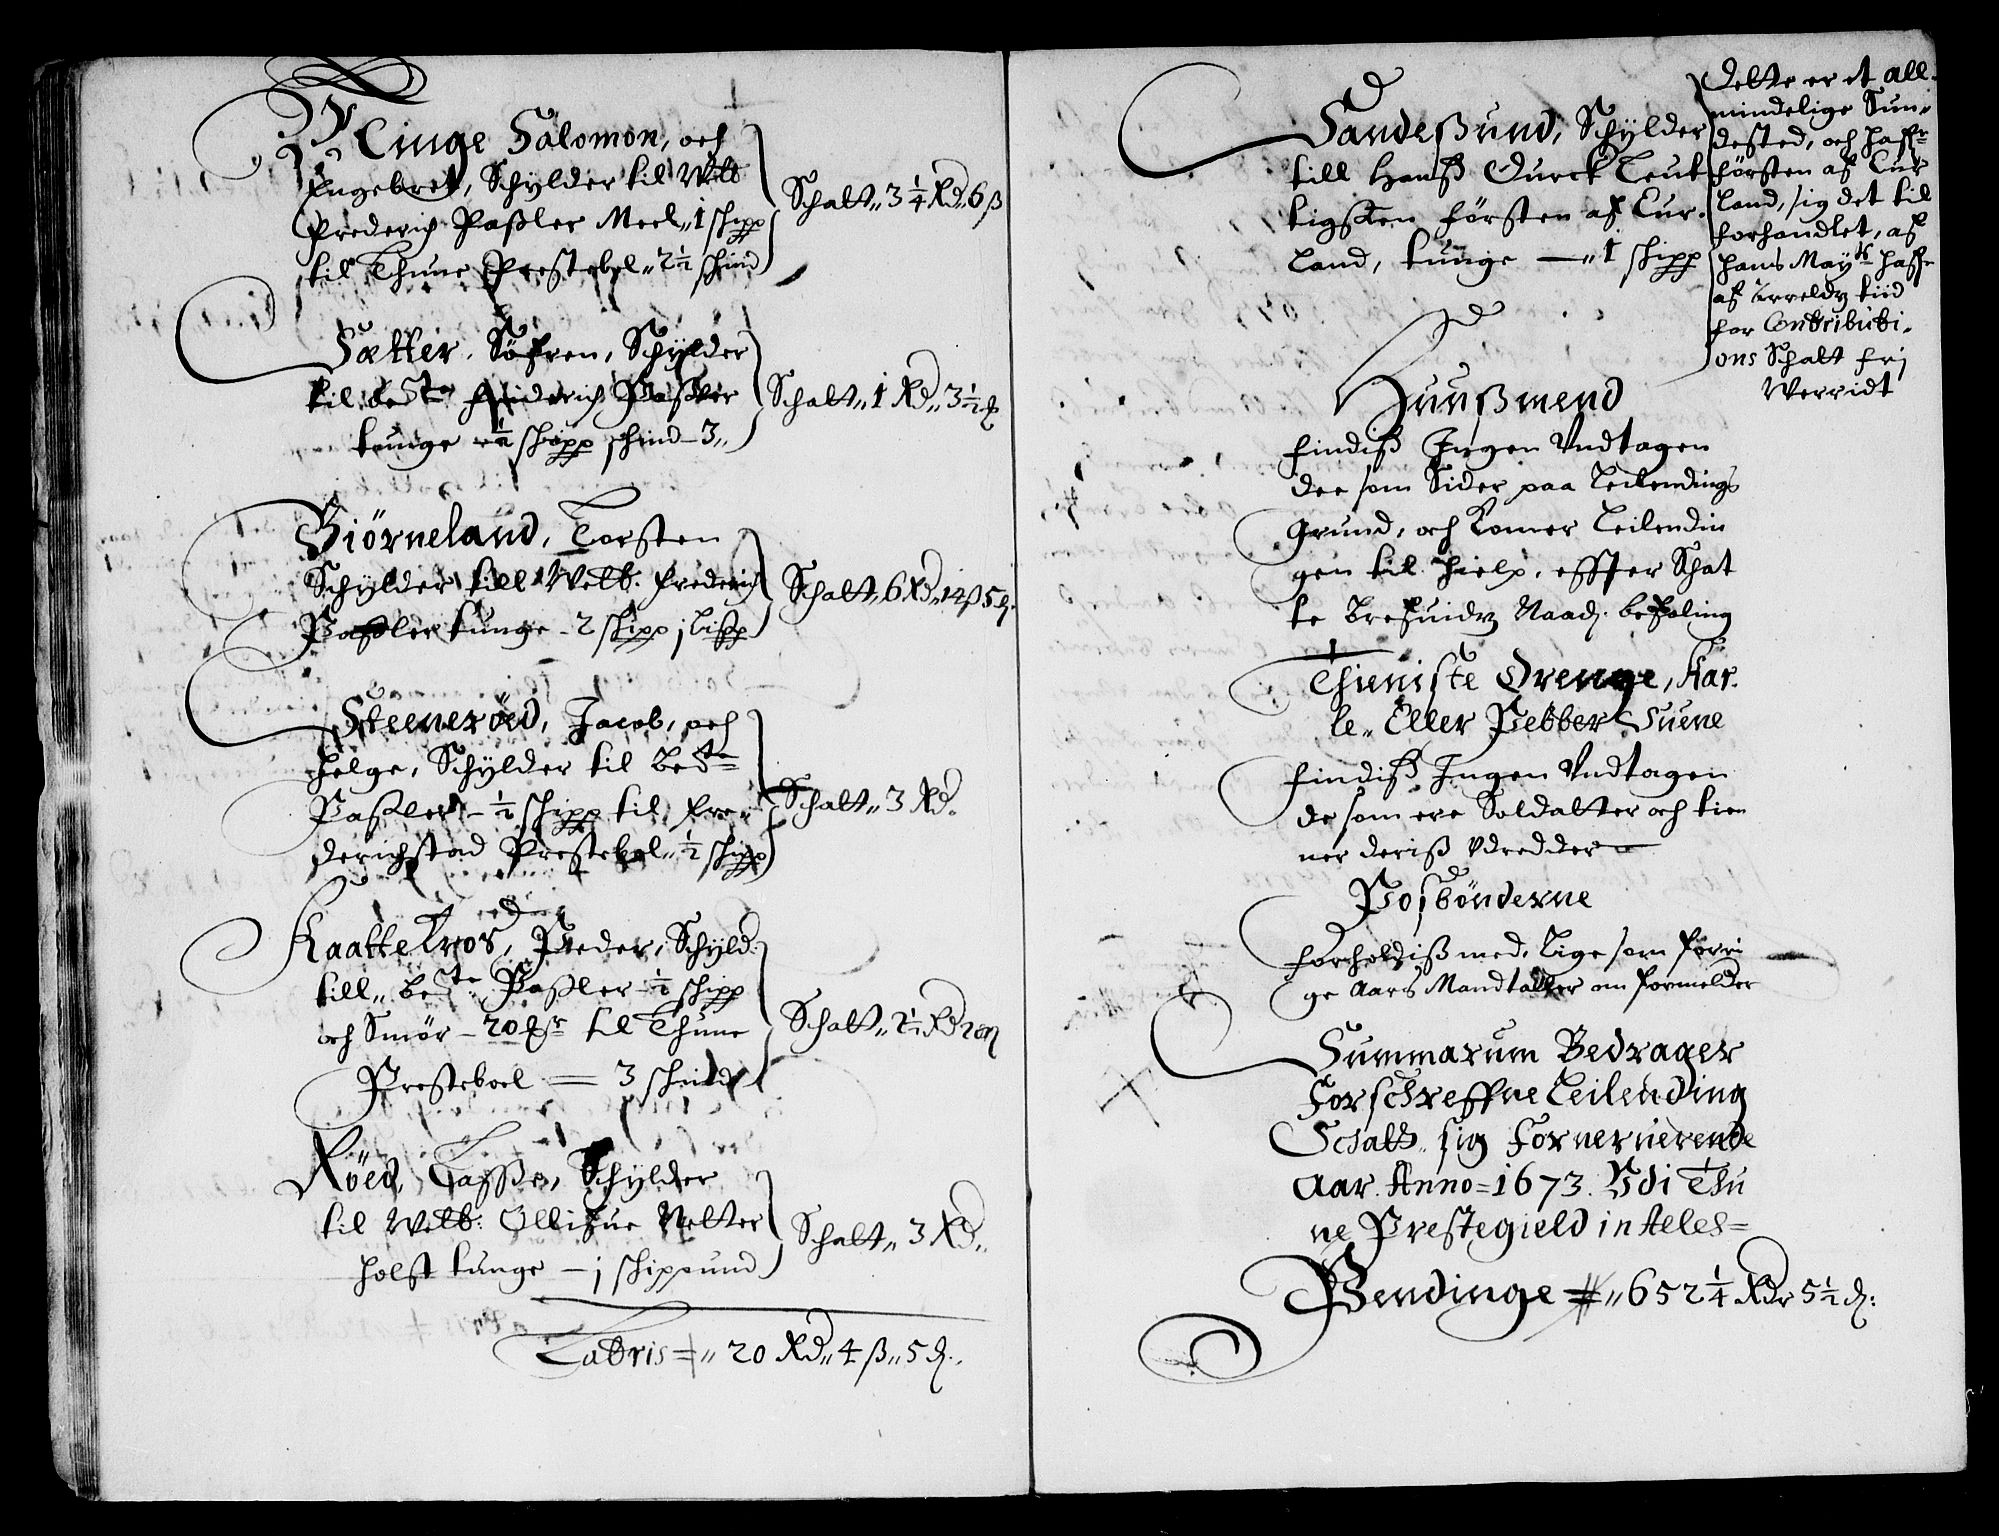 Winge Salomon, och
Engebret, Schylder til Welb
Frederich Paßler Meel„ 1 schipp
til Thune Prestebol„ 2½ schind
Schatt„ 3 ¼ Rd„ 6 ß
Sætter, Søfren, Schylder
til be^te Friderich Paßler
tunge ½ schipp schind – 3„
Schatt„ 1 Rd„ 3½ ß
Biörneland, Torsten
Schylder till Welb. Frederich
Paßler tunge – 2 schipp j Lispp
Schatt„ 6 Rd„ 14 ß 5 d.
Steeneröed, Jacob, och
Helge, Schylder til be^te
Paßler – ½ schipp til Fre-
derichstad Prestebol„ ½ schipp
Schatt„ 3 Rd.
Kaattelros, Peder, Schyld:
till„ be^te Paßler ½ schipp
och Smör – 20 til Thune
Presteboel = 3 schind
Schatt„ 2½ Rd
Röed, Tasse, Schylder
til Welb: Ollizue Netter
holst tunge – j schippund
Schatt„ 3 Rd„
Latris = „ 20 Rd„ 4 ß„ 5 d.
Sandeßund, Schylder
till Hanß Durchleuk
tigsten Försten af Cur-
land, tunge — „ 1 schipp
Dette er et all-
mindelige Sun-
dested, och haffr
försten af Cur
land, sig det til
forhandlet, af
hans May^ts haffr
af Arreldz tiid
for Contributi-
ons Schatt frj
Werridt
Huußmend
findiß Ingen Undtagen
dee som Sider paa Leilendings
Grund, och komer Leilendin
gen til hielp, effter Schat
te brefuidz Naad. befaling
Thieniste Drenge, Kar-
le„ Eller Pebber Suene
findiß Ingen Undtagen
de som ere Soldatter och tien
ner deriß Vdredder
Posbönderne
forholdiß med, Lige som forri
ge Aars Mandtaller om formelder
Summarum Bedrager
Forschreffne Leilending
Schatt„ sig Fornerverende
Aar. Anno = 1673. Vdi Thu
ne Prestegield in Aeles =
Pendinge = „ 652 ¼ Rdr 5½ d: